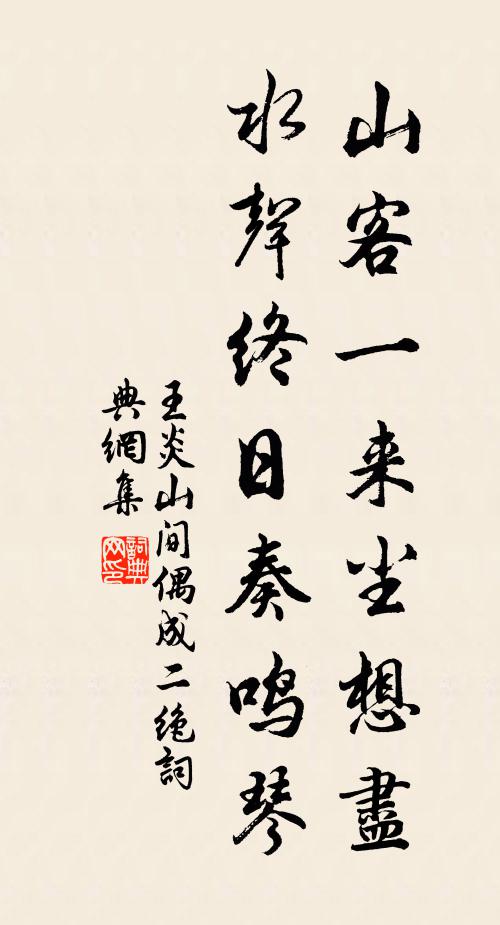 山客一来尘想盡
水聲终日奏鸣琴
王炎山间偶成二绝詞
典網集
詞典网印